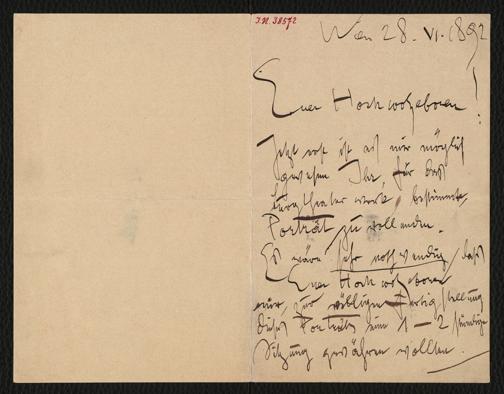 I.N. 38572
Wien 28. VI. 1892
Euer Hochwohgeboren!
Jetzt erst ist es mir möglich
gewesen Ihr, für das
Burgtheater werk bestimmte,
Porträt zu vollenden.
Es wäre sehr nothwendig, daß
Euer Hochwohgeboren
mir, zur völligen Fertigstellung
dieses Porträts eine 1–2 stündige
Sitzung gewähren wollten.